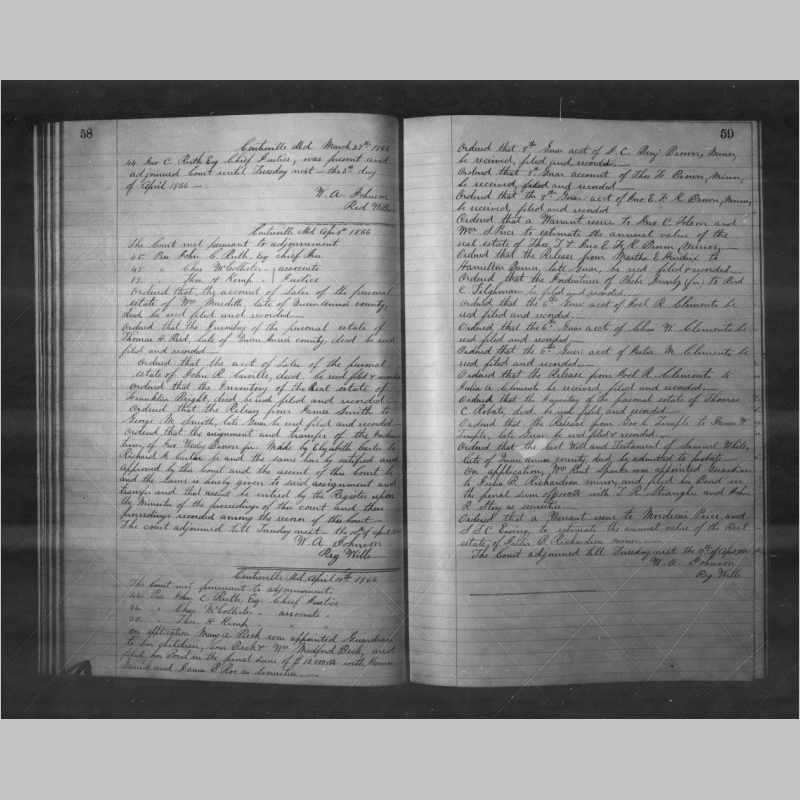 58
Centreville Md March 27th 1866
44 Jno C. Ruth Esq Chief Justice, was present and
adjourned Court until Tuesday next the 3d day
of April 1866
W. A. Johnson
Red Wills
Centreville Md Apr 3d 1866
The Court met pursuant to adjournment
45 Pre John C. Ruth, esq chief Jus
Chas McCollister associate
Thos H Kemp Justice
Ordered that the account of Sales of the personal
estate of Wm Meredith late of Queen Anne's county,
decd be recd filed and recorded
Ordered that the Inventory of the personal estate of
Thomas H. Reed, late of Queen Anne's county, decd be recd
filed and recorded
Ordered that the acct of Sales of the personal
estate of John R. decd. be recd filed &
Ordered that the Inventory of the Real estate of
Franklin Bright, decd be recd filed and recorded
Ordered that the Release from James Smith to
George W. Smith, late Guar be recd filed and recorded
Ordered that the assignment and transfer of the
of Jno Wesley Brown jn. Made by Elizabeth Carter to
Richard H. Carter be and the same hereby ratified and
approved by this Court and the assent of this Court be
and the same is hereby given to said assignment and
transfer and that assent be entered by the Register upon
the Minutes of the proceedings of this court and these
proceedings recorded among the records of this Court
The court adjourned till Tuesday next the 10th of April
W. A. Johnson
Reg Wills
Centreville Md, April 10th 1866
The Court met pursuant to adjournment
Pre John C. Ruth, Esq Chief Justice
" Chas McCollister " associate "
" Thos H Kemp " "
On application Mary A. Beck was appointed Guardian
to her children, Beck & Wm Medford Beck, and
filed her Bond in the penal sum of $ with James
and James P. Roe as securities
59
Ordered that 8th Guar acct of J. C. Benj Brown, Minor,
be received, filed and recorded
Ordered that the 8th Guar account of Thos T. Brown, Minor,
be received, filed and recorded
Ordered that the 8th Guar acct of Jno E. F. R Brown, Minor,
be received, filed and recorded
Ordered that a Warrant issue to Jno C. and
Wm S. Price to estimate the annual value of the
real estate of Thos T. & Jno E. F. R. Brown Minors,
Ordered that the Release from Martha E. to
Hamilton late Guar, be recd filed & recorded
Ordered that the Indenture of (fn) to
C. Tilghman be filed and recorded
Ordered that the 6th Guar acct of Joel R. Clements be
recd filed and recorded
Ordered that the 6th Guar acct of Chas W. Clements be
recd filed and recorded
Ordered that the 6th Guar acct of M. Clements be
recd filed and recorded
Ordered that the Release from Joel R. Clements to
Julia A. Clements be received filed and recorded
Ordered that the Inventory of the personal estate of Thomas
C. Roberts decd be recd filed and recorded
Ordered that the Release from Geo L. Temple to James W
Temple, late Guar be recd filed & recorded
Ordered that the last Will and Testament of Samuel White,
late of Queen Annes county decd be admitted to probate
On application, Wm Rich Sparks was appointed Guardian
to R. Richardson minor, and filed his Bond in
the penal sum of with T. R. Straughn and John
R. Story as securities
Ordered that a Warrant issue to Mordecai Price and
J. B. C. Ewing, to estimate the annual value of the Real
estate of R. Richardson minor
The Court adjourned till Tuesday next the 17th of April
W. A. Johnson
Reg Wills